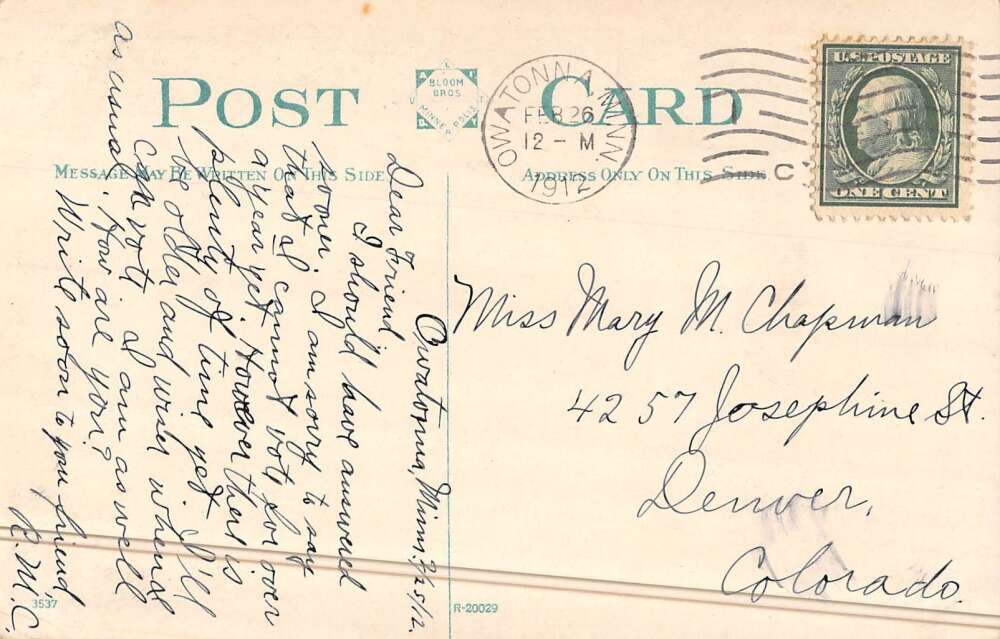 POST CARD
BLOOM
BROS
MINNEAPOLIS
OWATONNA, MINN.
FEB 26
12 - M
1912
U.S. POSTAGE
ONE CENT
C
MESSAGE MAY BE WRITTEN ON THIS SIDE
ADDRESS ONLY ON THIS SIDE
Owatonna, Minn. 2/25/12.
Dear Friend
I should have answered
sooner. I am sorry to say
that I cannot vote for over
a year yet. However there is
plenty of time yet. I'll
be older and wiser when I
can vote. I am as well
as usual. How are you?
Write soon to your friend
R.M.C.
Miss Mary M. Chapman
4257 Josephine St.
Denver,
Colorado.
3537
R-20029